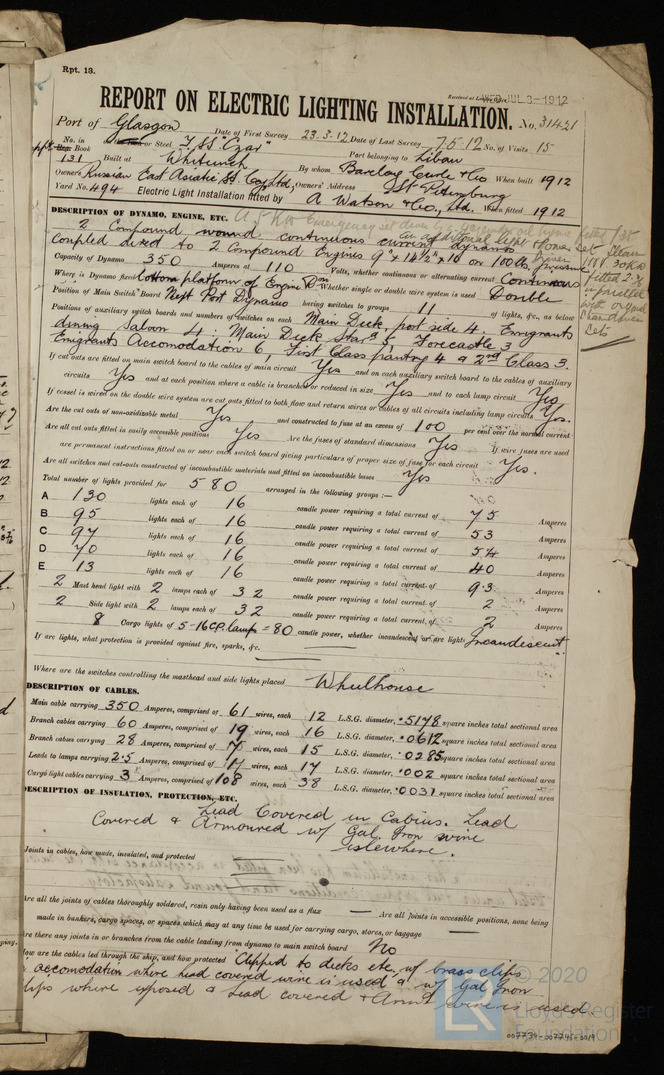 Rpt. 13.
REPORT ON ELECTRIC LIGHTING INSTALLATION. No. 31421
Received at London Office WED. JUL. 3-1912
Port of Glasgow Date of First Survey 23.3.12 Date of Last Survey 7.5.12 No. of Visits 15
No. in Reg. Book on the Iron or Steel T.SS "Czar" Port belonging to Libau
131 Built at Whiteinch By whom Barclay Curle & Co When built 1912
Owners Russian East Asiatic SS. Coy Ltd, Owners' Address St Petersburg
Yard No. 494 Electric Light Installation fitted by A Watson & Co., Ltd. When fitted 1912
DESCRIPTION OF DYNAMO, ENGINE, ETC.
2 Compound wound continuous current dynamo
Coupled direct to 2 Compound Engines 9" & 14½" x 10 or 100 lb. pressure
Capacity of Dynamo 350 Amperes at 110 Volts, whether continuous or alternating current Continuous
Where is Dynamo fixed bottom platform of Engine Rm Whether single or double wire system is used Double
Position of Main Switch Board Next Port Dynamo having switches to groups 11 of lights, &c., as below
Positions of auxiliary switch boards and numbers of switches on each Main Deck, port side 4. Emigrants
dining Saloon 4: Main Deck Starb 5, Forecastle 3
Emigrants Accomodation 6, First Class pantry 4 & 2nd Class 3.
If cut outs are fitted on main switch board to the cables of main circuit Yes and on each auxiliary switch board to the cables of auxiliary
circuits Yes and at each position where a cable is branched or reduced in size Yes and to each lamp circuit Yes
If vessel is wired on the double wire system are cut outs fitted to both flow and return wires or cables of all circuits including lamp circuits Yes.
Are the cut outs of non-oxidizable metal Yes and constructed to fuse at an excess of 100 per cent over the normal current
Are all cut outs fitted in easily accessible positions Yes Are the fuses of standard dimensions Yes If wire fuses are used
are permanent instructions fitted on or near each switch board giving particulars of proper size of fuse for each circuit Yes.
Are all switches and cut-outs constructed of incombustible materials and fitted on incombustible bases Yes
Total number of lights provided for 580 arranged in the following groups :—
A 130 lights each of 16 candle power requiring a total current of 75 Amperes
B 95 lights each of 16 candle power requiring a total current of 53 Amperes
C 97 lights each of 16 candle power requiring a total current of 54 Amperes
D 70 lights each of 16 candle power requiring a total current of 40 Amperes
E 13 lights each of 16 candle power requiring a total current of 9.3 Amperes
2 Mast head light with 2 lamps each of 32 candle power requiring a total current of 2 Amperes
2 Side light with 2 lamps each of 32 candle power requiring a total current of 2 Amperes
8 Cargo lights of 5-16 CP. lamps = 80 candle power, whether incandescent or arc lights Incandescent.
If arc lights, what protection is provided against fire, sparks, &c.
Where are the switches controlling the masthead and side lights placed Wheelhouse
DESCRIPTION OF CABLES.
Main cable carrying 350 Amperes, comprised of 61 wires, each 12 L.S.G. diameter, .5178 square inches total sectional area
Branch cables carrying 60 Amperes, comprised of 19 wires, each 16 L.S.G. diameter, .0612 square inches total sectional area
Branch cables carrying 28 Amperes, comprised of 7 wires, each 15 L.S.G. diameter, .0285 square inches total sectional area
Leads to lamps carrying 2.5 Amperes, comprised of 1 wires, each 17 L.S.G. diameter, .002 square inches total sectional area
Cargo light cables carrying 3 Amperes, comprised of 108 wires, each 38 L.S.G. diameter, .0031 square inches total sectional area
DESCRIPTION OF INSULATION, PROTECTION, ETC.
Lead Covered in Cabins. Lead
Covered & Armoured w/ Gal. Iron wire
elsewhere.
Joints in cables, how made, insulated, and protected
Are all the joints of cables thoroughly soldered, resin only having been used as a flux — Are all joints in accessible positions, none being
made in bunkers, cargo spaces, or spaces which may at any time be used for carrying cargo, stores, or baggage —
Are there any joints in or branches from the cable leading from dynamo to main switch board No
How are the cables led through the ship, and how protected Clipped to decks etc. w/ brass clips
accomodation where lead covered wire is used & w/ Gal Iron
clips where exposed & lead covered & Arm'd wire is used.
© 2020
LR
Lloyd's Register
Foundation
007734-007745-0019